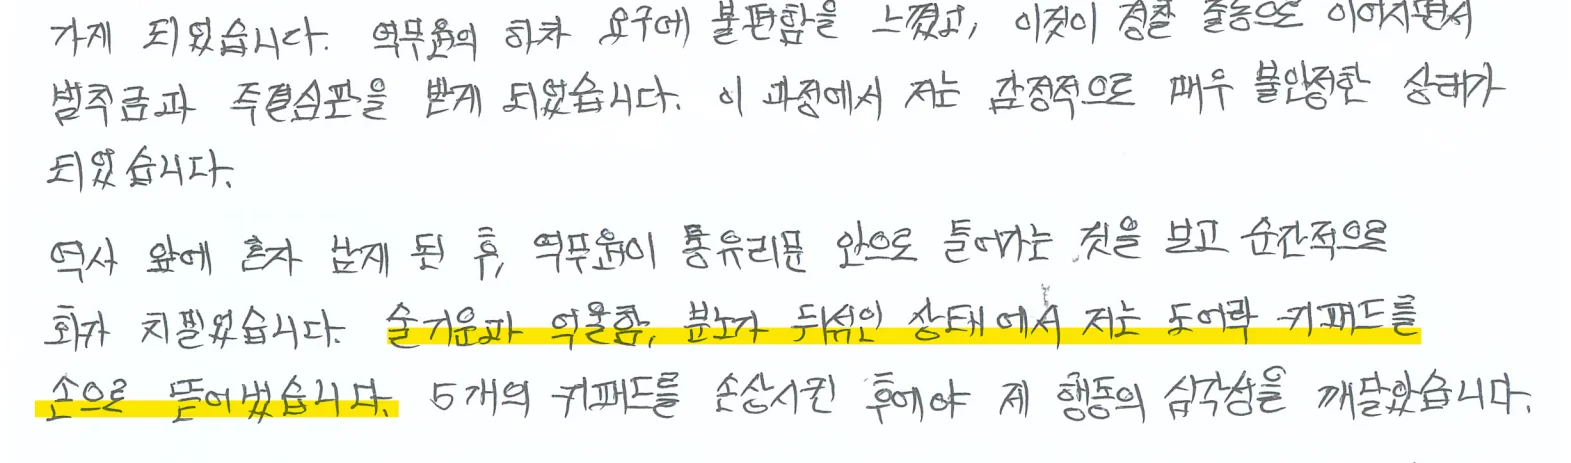 가게 되었습니다. 역무원의 하차 요구에 불편함을 느꼈고, 이것이 경찰 출동으로 이어지면서
범죄금과 즉결심판을 받게 되었습니다. 이 과정에서 저는 감정적으로 매우 불안정한 상태가
되었습니다.
역사 앞에 혼자 남게 된 후, 역무원이 통유리문 안으로 들어가는 것을 보고 순간적으로
화가 치밀었습니다. 술기운과 억울함, 분노가 뒤섞인 상태에서 저는 도어락 키패드를
손으로 뜯어냈습니다. 5개의 키패드를 손상시킨 후에야 제 행동의 심각성을 깨달았습니다.